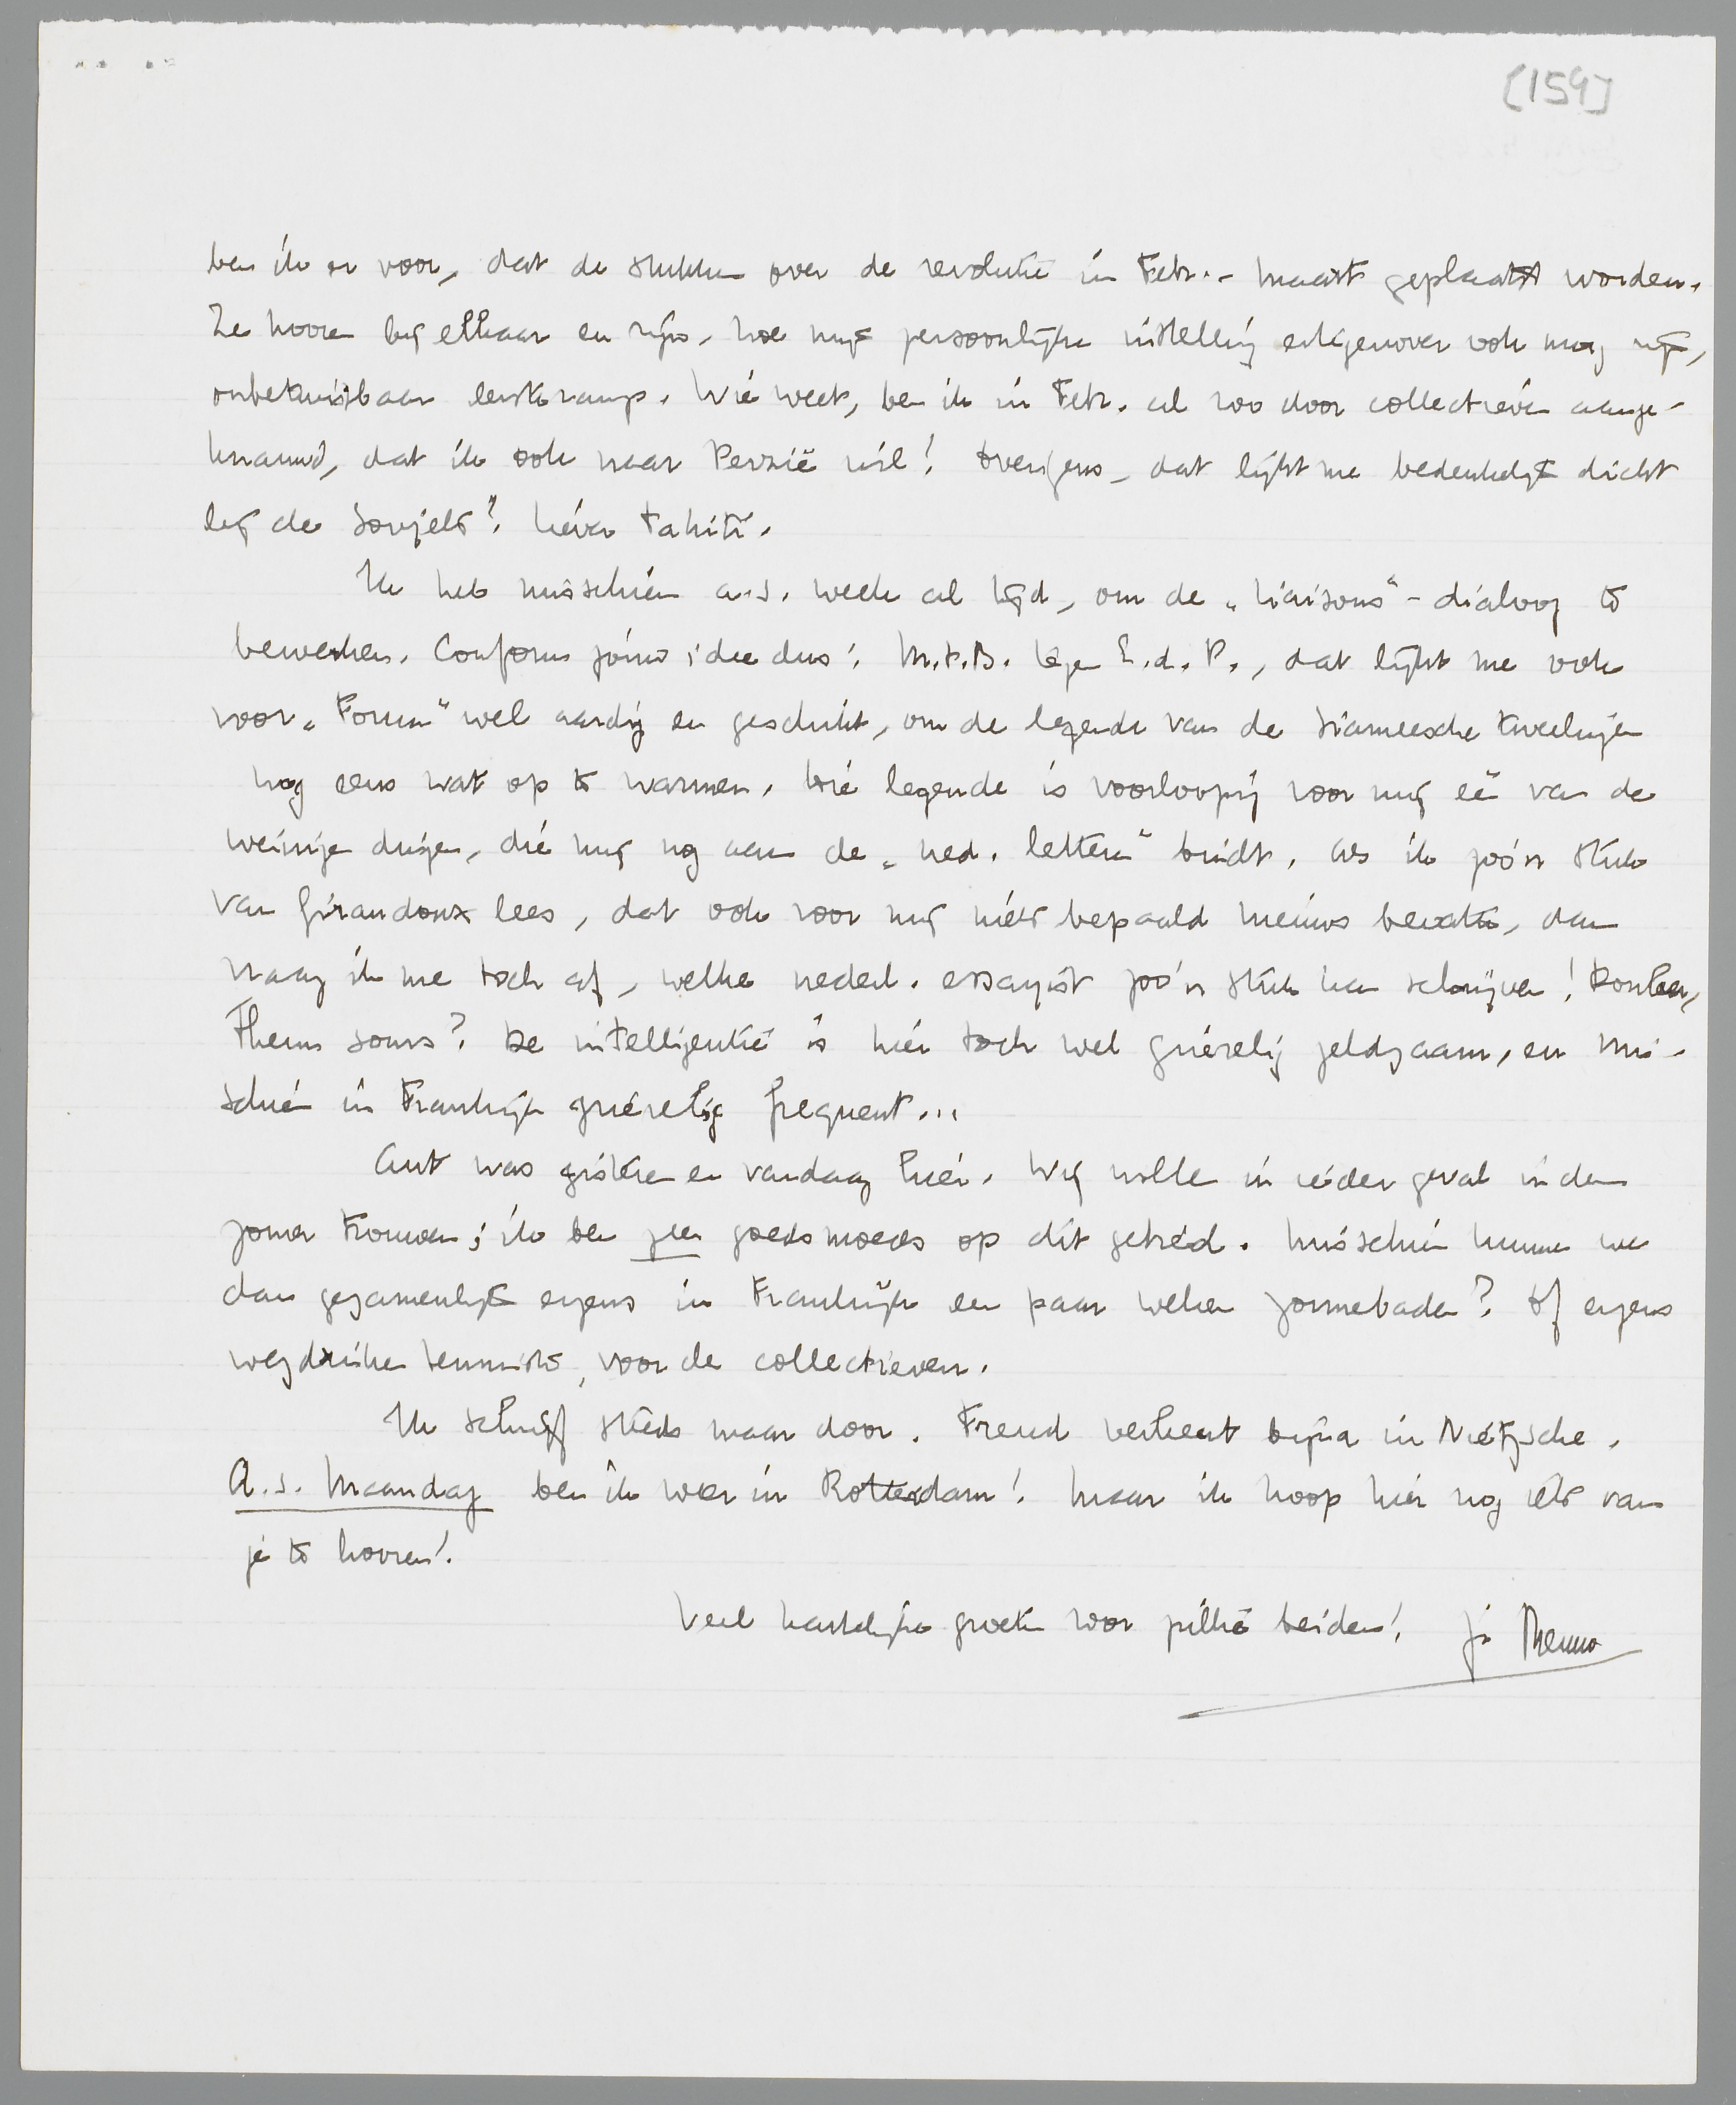 [159]
ben ik er voor, dat de stukken over de revolutie in Febr.- Maart geplaatst worden.
Ze hooren bij elkaar en zijn, hoe mijn persoonlijke instelling ertegenover ook mag zijn,
onbetwistbaar eersterangs. Wie weet, ben ik in Febr. al zoo door collectieven aange-
knauwd, dat ik ook naar Perzië wil! Overigens, dat lijkt me bedenkelijk dicht
bij de Sovjets! Liever Tahiti.
Ik heb misschien a.s. week al tijd, om de „Liaisons"-dialoog te
bewerken. Conform jouw idee dus: M.t.B. tegen E.d.P., dat lijkt me ook
voor „Forum" wel aardig en geschikt, om de legende van de Siameesche tweelingen
nog eens wat op te warmen. Die legende is voorloopig voor mij één van de
weinige dingen, die mij nog aan de „Ned. letteren" bindt. Als ik zoo'n stuk
van Giraudoux lees, dat ook voor mij niets bepaald nieuws bevatte, dan
vraag ik me toch af, welke nederl. essayist zoo'n stuk kan schrijven! Donker,
Theun sours? De intelligentie is hier toch wel griezelig zeldzaam, en mis-
schien in Frankrijk griezelig frequent...
Ant was gisteren en vandaag hier. Wij willen in ieder geval in den
zomer trouwen; ik ben zeer goedsmoeds op dit gebied. Misschien kunnen we
dan gezamenlijk ergens in Frankrijk een paar weken zonnebaden? Of ergens
wegduiken tenminste, voor de collectieven.
Ik schrijf steeds maar door. Freud verkeert bijna in Nietzsche.
A.s. Maandag ben ik weer in Rotterdam! Maar ik hoop hier nog iets van
je te hooren!
Veel hartelijke groeten voor jullie beiden! je Menno